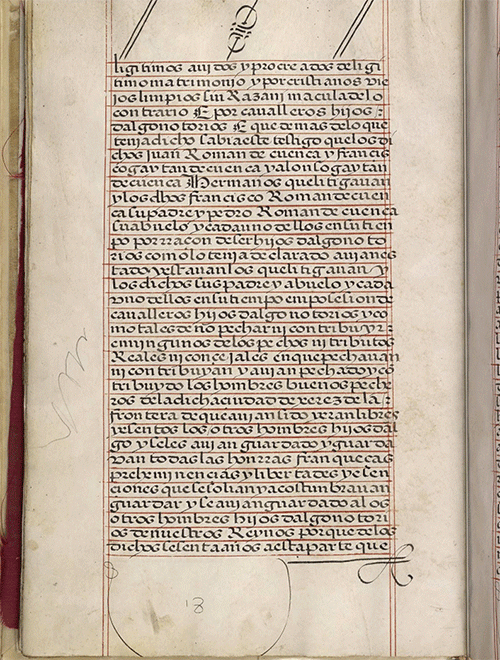 ligitimos avidos y procreados de ligi
timo matrimonio y por cristianos vie
jos limpios sin Raza ni macula de lo
contrario E por cavalleros hijos
dalgo notorios E que demas de lo que
tenia dicho sabia este testigo que los di
chos juan Roman de cuenca y francis
co gaytan de cuenca y alonso gaytan
de cuenca Hermanos que litigavan
y los dhos francisco Roman de cuen
ca su padre y pedro Roman de cuenca
su abuelo y cada uno dellos en su tiem
po por rracon de ser hijos dalgo noto
rios como lo tenia declarado avian es
tado y estavan los que litigavan y
los dichos sus padre y abuelo y cada
uno dellos en su tiempo en posesion de
cavalleros hijos dalgo notorios y co
mo tales de no pechar ni contribuyr
en ningunos de los pechos ni tributos
Reales ni concejales en que pechavan
ni contribuyan y avian pechado y co
tribuydo los hombres buenos peche
ros de la dicha ciudad de xerez de la
frontera de que avian sido y eran libres
y esentos los otros hombres hijos dal
go y se les avian guardado y guarda
van todas las honrras franquecas
preheminencias y libertades y esen
ciones que se solian y acostumbravan
guardar y se avian guardado a los
otros hombres hijos dalgo notori
os de nuestros Reynos porque de los
dichos sesenta años a esta parte que
18